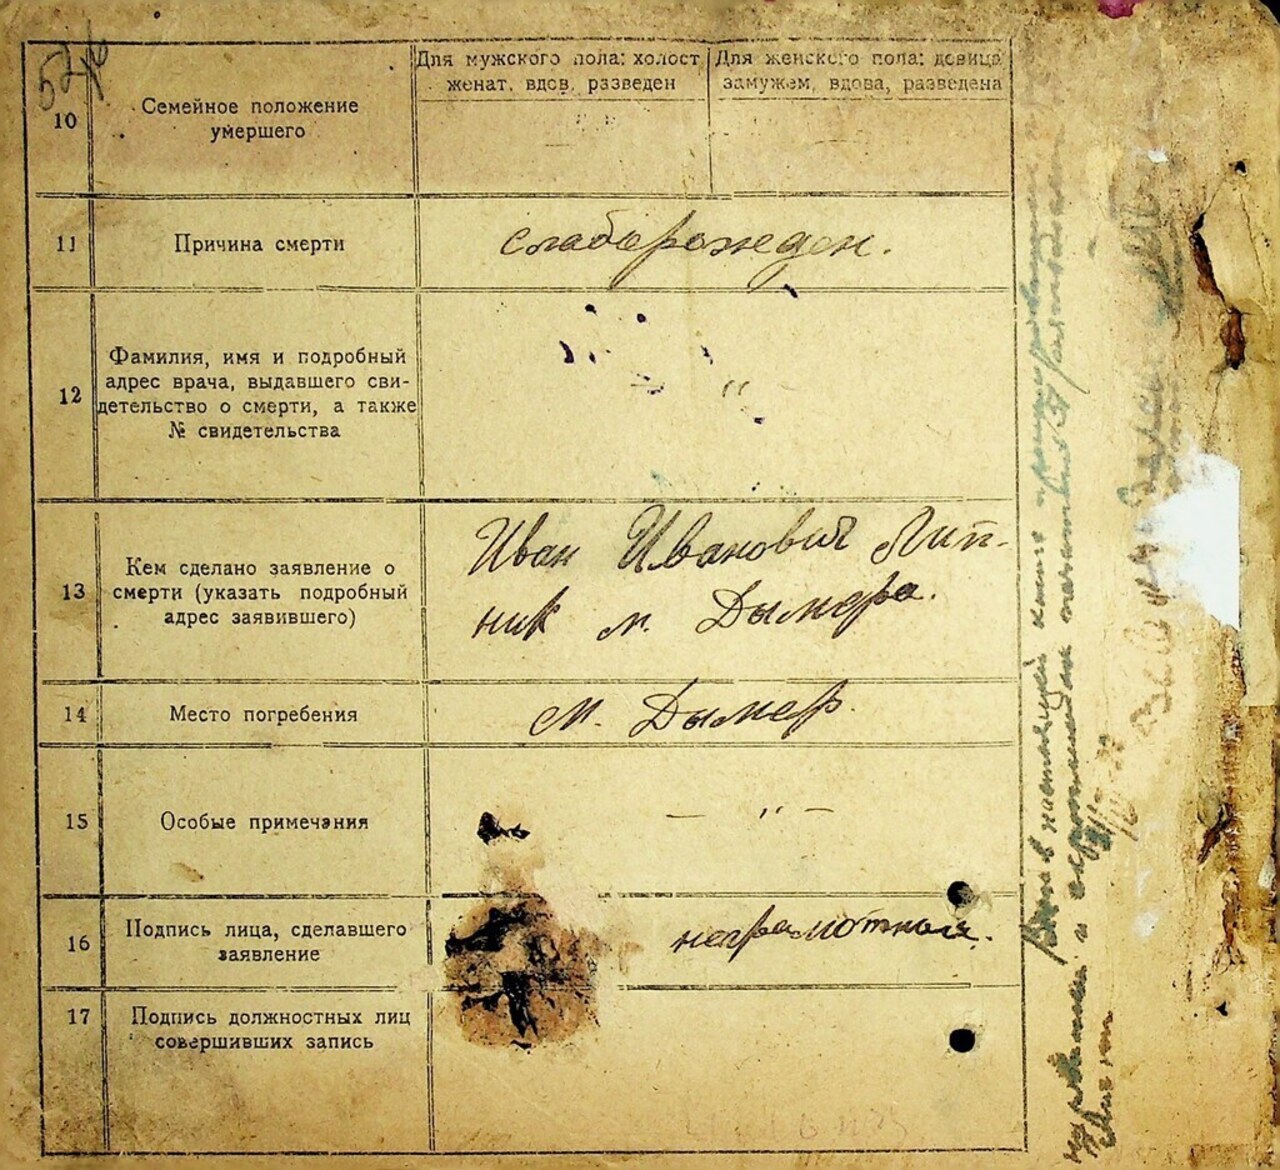 10
Семейное положение
умершего
Для мужского пола: холост
женат, вдов, разведен
Для женского пола: девица
замужем, вдова, разведена
11
Причина смерти
слаборожден.
12
Фамилия, имя и подробный
адрес врача, выдавшего сви-
детельство о смерти, а также
№ свидетельства
13
Кем сделано заявление о
смерти (указать подробный
адрес заявившего)
Иван Иванович Лип-
ник м. Дымера.
14
Место погребения
м. Дымер.
15
Особые примечания
— " —
16
Подпись лица, сделавшего
заявление
неграмотный.
17
Подпись должностных лиц
совершивших запись
в настоящей книге
и